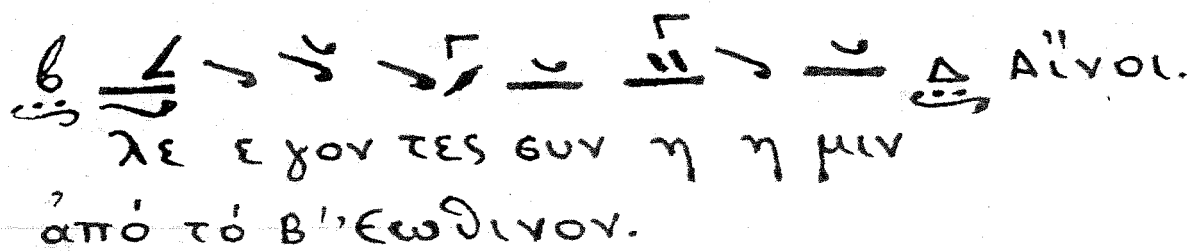 β Δ Αἵνοι.
λε ε γον τες συν η η μιν
ἀπό τό Β' Ἑωθινον.